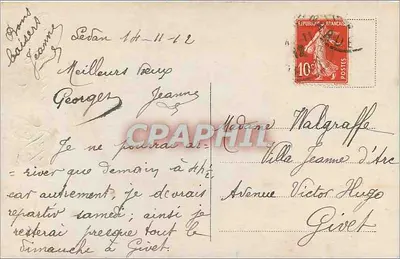 Bons
baisers
Jeanne
Sedan 14-11-12
Meilleurs vœux
Georges Jeanne
Je ne pourrai ar-
river que demain à 4h½
car autrement, je devrais
repartir samedi; ainsi je
resterai presque tout le
dimanche à Givet.
REPUBLIQUE FRANÇAISE
10c
POSTES
Madame Walgraffe
Villa Jeanne d'Arc
Avenue Victor Hugo
Givet
CPAPHIL